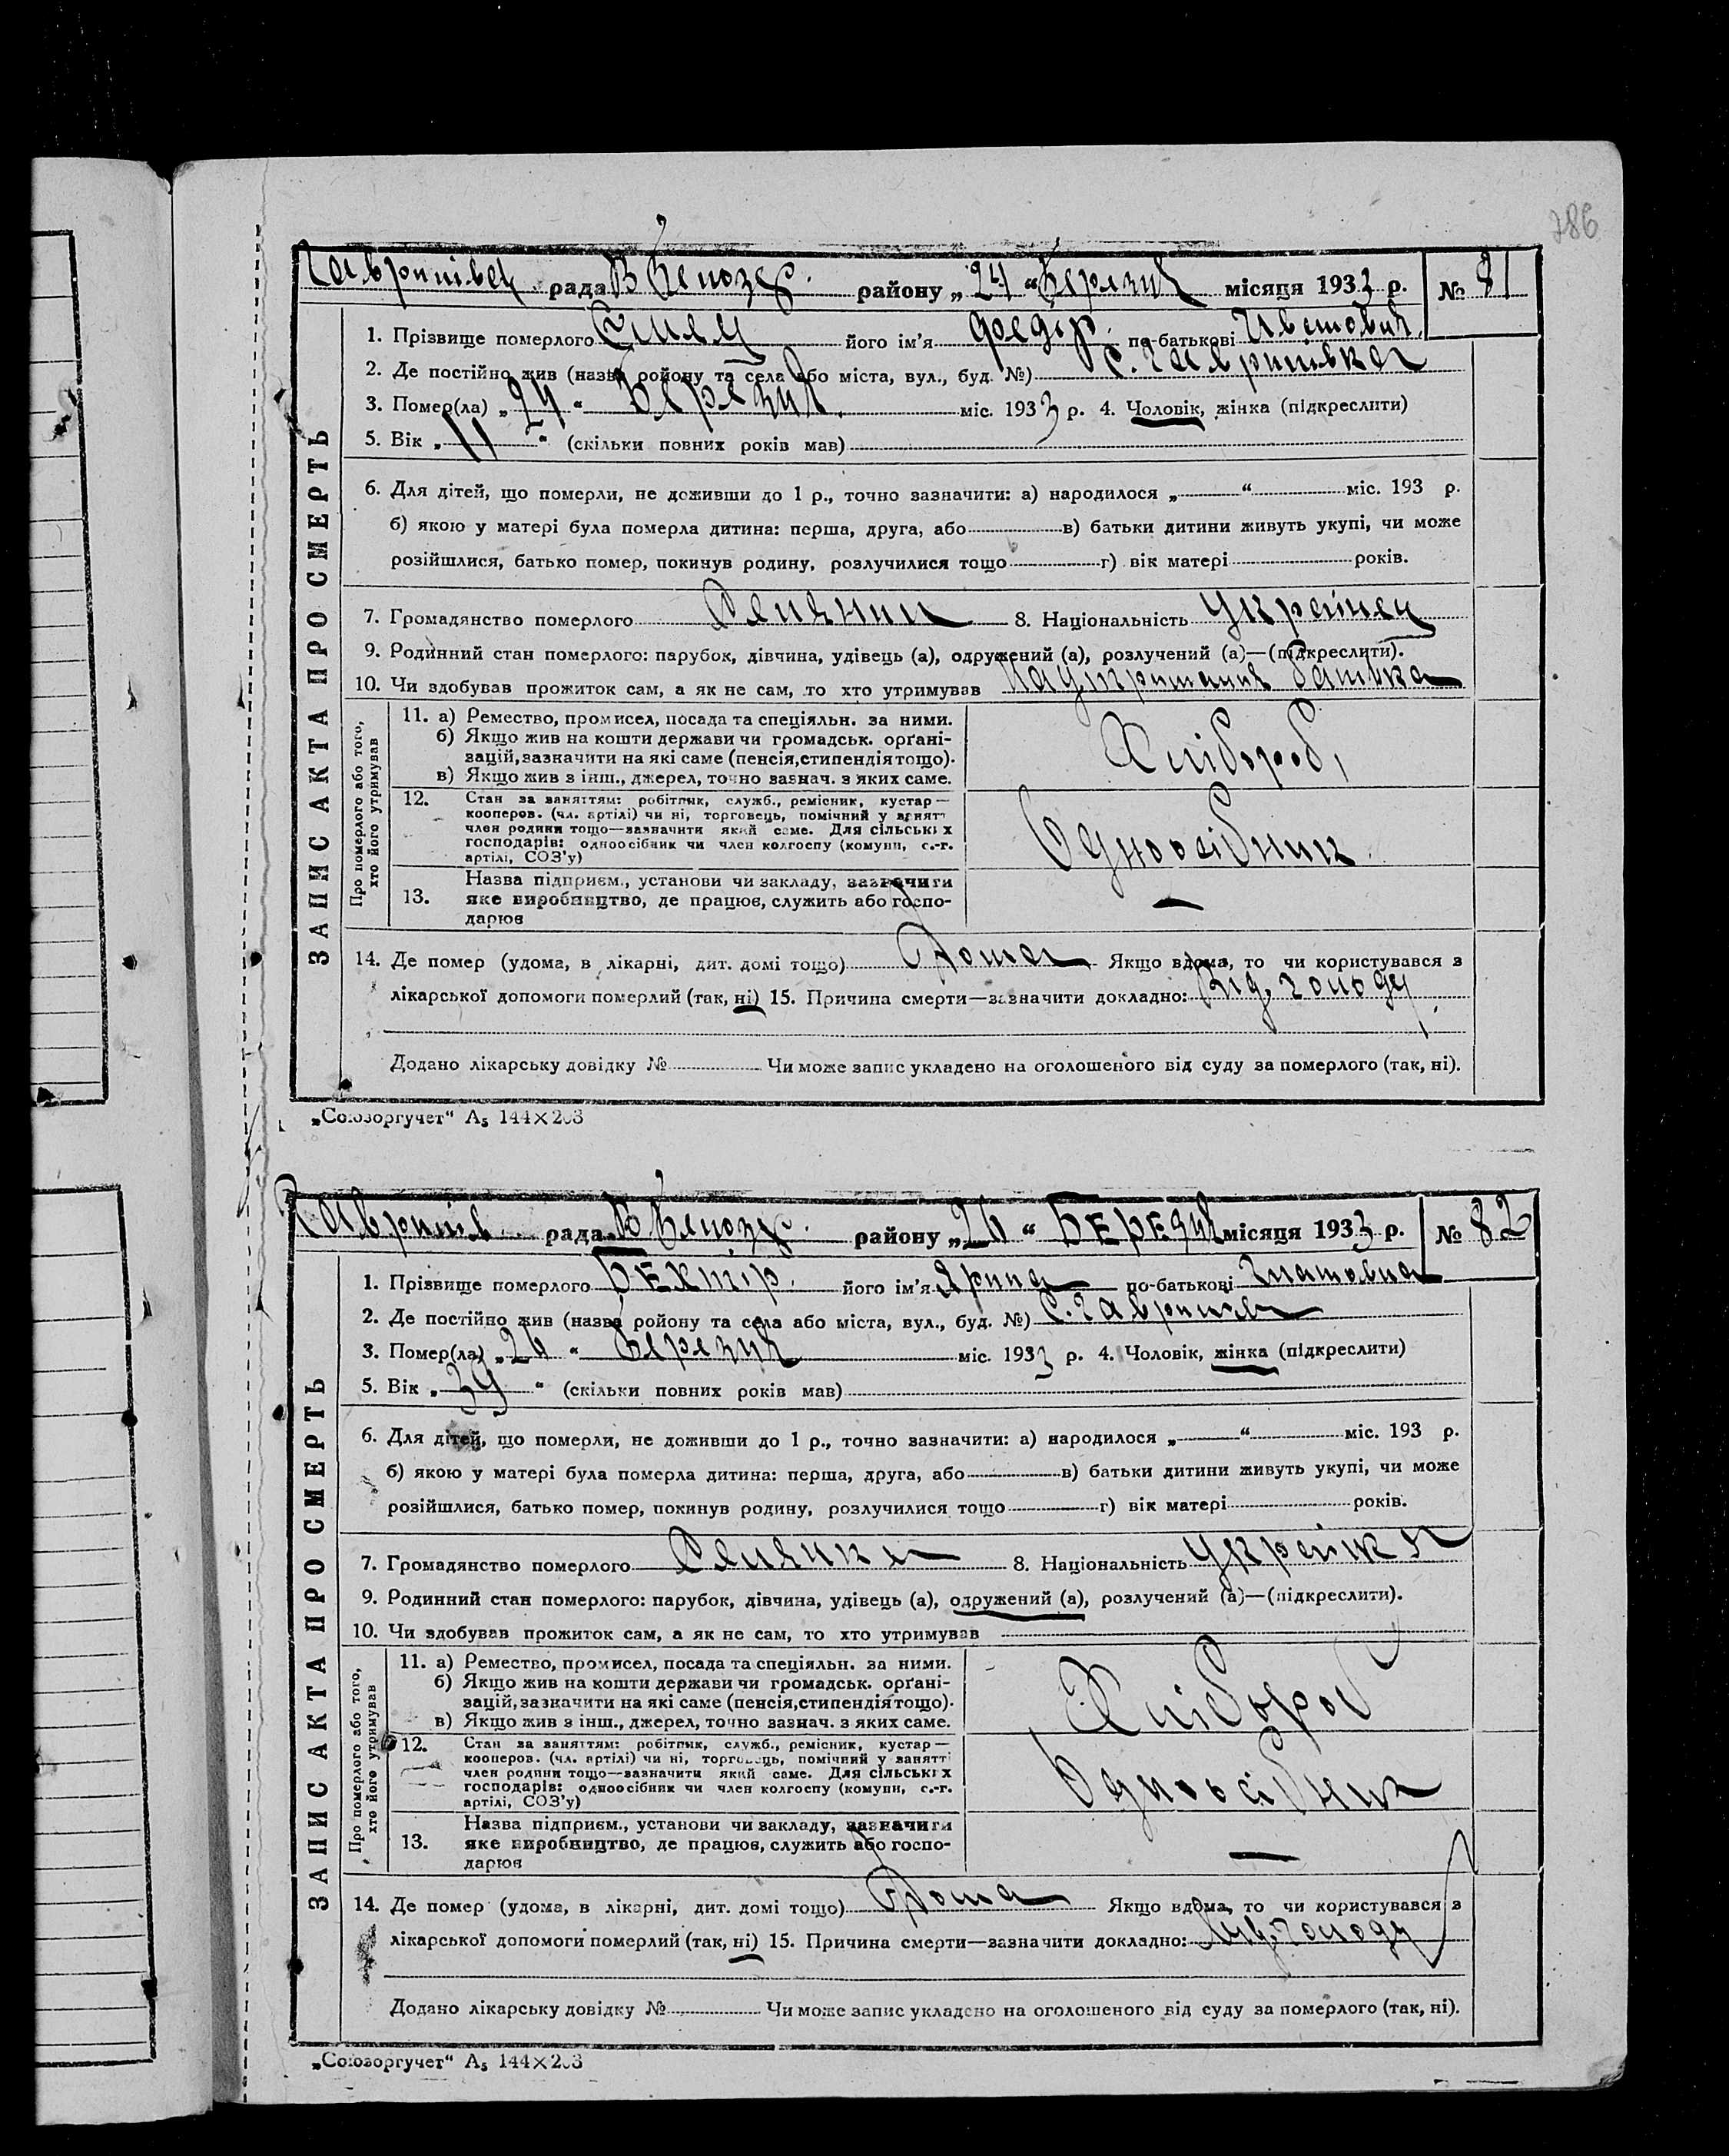 786
рада В Білозер. району „24“ Березня місяця 1933 р. № 81
ЗАПИС АКТА ПРО СМЕРТЬ
1. Прізвище померлого його ім'я по-батькові
2. Де постійно жив (назва ройону та села або міста, вул., буд. №) с. Гавришівка
3. Помер(ла) „24“ Березня міс. 1933 р. 4. Чоловік, жінка (підкреслити)
5. Вік „11“ (скільки повних років мав)
6. Для дітей, що померли, не доживши до 1 р., точно зазначити: а) народилося „ “ міс. 193 р.
б) якою у матері була померла дитина: перша, друга, або в) батьки дитини живуть укупі, чи може
розійшлися, батько помер, покинув родину, розлучилися тощо г) вік матері років.
7. Громадянство померлого Селянин 8. Національність Украінец
9. Родинний стан померлого: парубок, дівчина, удівець (а), одружений (а), розлучений (а)—(підкреслити).
10. Чи здобував прожиток сам, а як не сам, то хто утримував батька
Про померлого або того, хто його утримував
11. а) Ремество, промисел, посада та спеціяльн. за ними.
б) Якщо жив на кошти держави чи громадськ. орґані-
зацій, зазначити на які саме (пенсія, стипендія тощо).
в) Якщо жив з інш., джерел, точно зазнач. з яких саме.
Хлібороб,
12. Стан за заняттям: робітник, служб., ремісник, кустар—
кооперов. (чл. артілі) чи ні, торговець, помічний у занятт
член родини тощо—зазначити який саме. Для сільських
господарів: одноосібник чи член колгоспу (комуни, с.-г.
артілі, СОЗ'у)
Одноосібник
13. Назва підприєм., установи чи закладу, зазначити
яке виробництво, де працює, служить або госпо-
дарює
—
14. Де помер (удома, в лікарні, дит. домі тощо) Дома Якщо вдома, то чи користувався з
лікарської допомоги померлий (так, ні) 15. Причина смерти—зазначити докладно: Від голоду.
Додано лікарську довідку № Чи може запис укладено на оголошеного від суду за померлого (так, ні).
„Союзоргучет“ А5 144×203
рада В Білозер. району „26“ БЕРЕЗНЯ місяця 1933 р. № 82
ЗАПИС АКТА ПРО СМЕРТЬ
1. Прізвище померлого його ім'я Ярина по-батькові Гнатовна
2. Де постійно жив (назва ройону та села або міста, вул., буд. №)
3. Помер(ла) „26“ Березня міс. 1933 р. 4. Чоловік, жінка (підкреслити)
5. Вік „39“ (скільки повних років мав)
6. Для дітей, що померли, не доживши до 1 р., точно зазначити: а) народилося „ “ міс. 193 р.
б) якою у матері була померла дитина: перша, друга, або в) батьки дитини живуть укупі, чи може
розійшлися, батько помер, покинув родину, розлучилися тощо г) вік матері років.
7. Громадянство померлого Селянка 8. Національність Украінка
9. Родинний стан померлого: парубок, дівчина, удівець (а), одружений (а), розлучений (а)—(підкреслити).
10. Чи здобував прожиток сам, а як не сам, то хто утримував
Про померлого або того, хто його утримував
11. а) Ремество, промисел, посада та спеціяльн. за ними.
б) Якщо жив на кошти держави чи громадськ. орґані-
зацій, зазначити на які саме (пенсія, стипендія тощо).
в) Якщо жив з інш., джерел, точно зазнач. з яких саме.
Хлібороб
12. Стан за заняттям: робітник, служб., ремісник, кустар—
кооперов. (чл. артілі) чи ні, торговець, помічний у занятті
член родини тощо—зазначити який саме. Для сільських
господарів: одноосібник чи член колгоспу (комуни, с.-г.
артілі, СОЗ'у)
Одноосібник
13. Назва підприєм., установи чи закладу, зазначити
яке виробництво, де працює, служить або госпо-
дарює
—
14. Де помер (удома, в лікарні, дит. домі тощо) Дома Якщо вдома, то чи користувався з
лікарської допомоги померлий (так, ні) 15. Причина смерти—зазначити докладно: Від голоду
Додано лікарську довідку № Чи може запис укладено на оголошеного від суду за померлого (так, ні).
„Союзоргучет“ А5 144×203